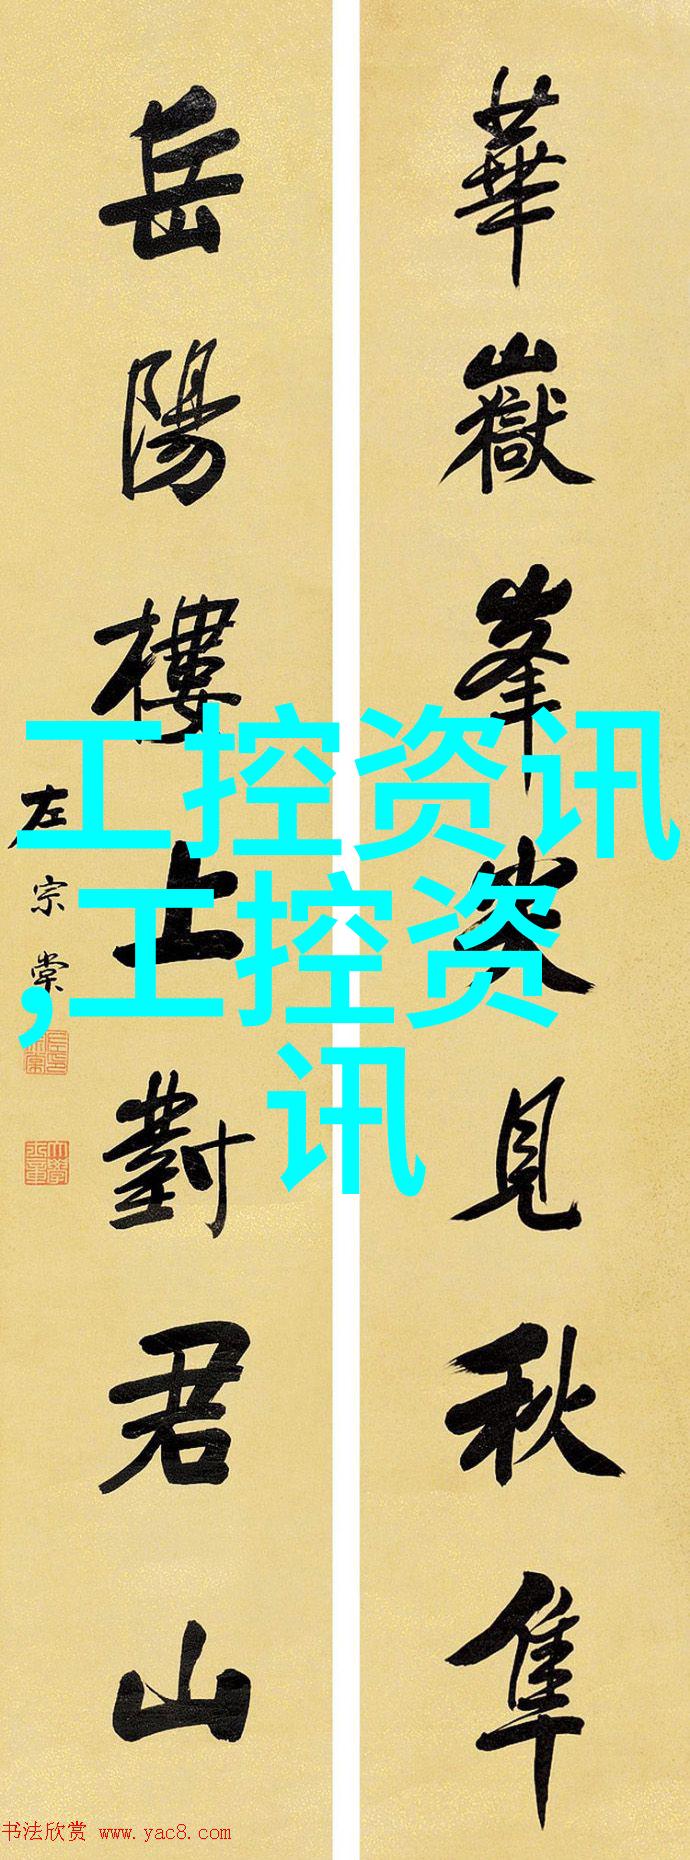 華嶽峯尖見秋隼
岳陽樓上對君山
左宗棠
工控资讯
,工控资
讯
书法欣赏 www.yac8.com